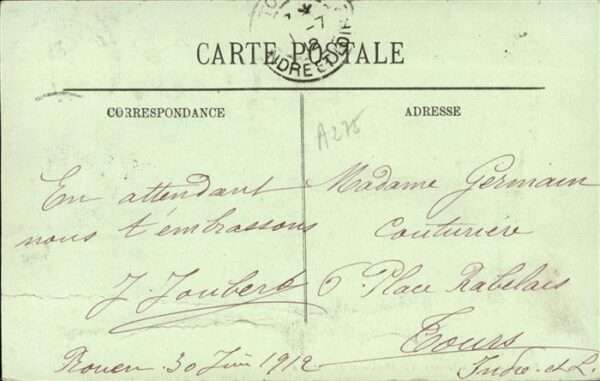 CARTE POSTALE
INDRE-ET-LOIRE
CORRESPONDANCE
ADRESSE
A275
En attendant
nous t'embrassons
J. Joubert
Rouen 30 Juin 1912
Madame Germain
Couturière
6 Place Rabelais
Tours
Indre-et-L.